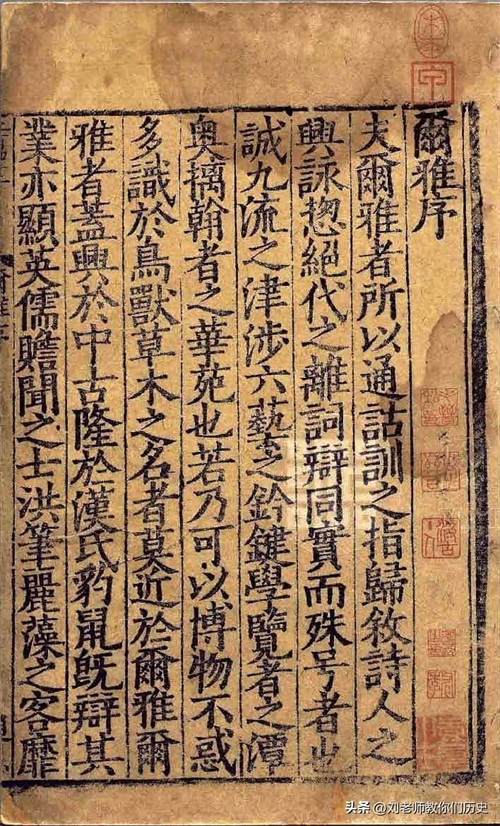 爾雅序
夫爾雅者所以通詁訓之指歸敘詩人之
興詠揔絕代之離詞辯同實而殊号者也
誠九流之津涉六藝之鈐鍵學覽者之潭
奧摛翰者之華苑也若乃可以博物不惑
多識於鳥獸草木之名者莫近於爾雅爾
雅者蓋興於中古隆於漢氏豹鼠既辯其
業亦顯英儒贍聞之士洪筆麗藻之客靡
头条 @刘老师教你们历史